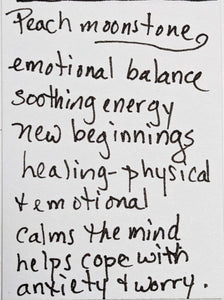 Peach moonstone
emotional balance
soothing energy
new beginnings
healing-physical
+ emotional
calms the mind
helps cope with
anxiety + worry.